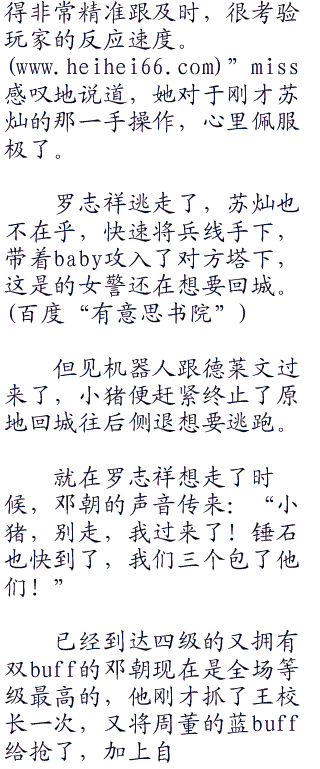 得非常精准跟及时，很考验
玩家的反应速度。
(www.heihei66.com)”miss
感叹地说道，她对于刚才苏
灿的那一手操作，心里佩服
极了。
罗志祥逃走了，苏灿也
不在乎，快速将兵线手下，
带着baby攻入了对方塔下，
这是的女警还在想要回城。
(百度“有意思书院”)
但见机器人跟德莱文过
来了，小猪便赶紧终止了原
地回城往后侧退想要逃跑。
就在罗志祥想走了时
候，邓朝的声音传来：“小
猪，别走，我过来了！锤石
也快到了，我们三个包了他
们！”
已经到达四级的又拥有
双buff的邓朝现在是全场等
级最高的，他刚才抓了王校
长一次，又将周董的蓝buff
给抢了，加上自